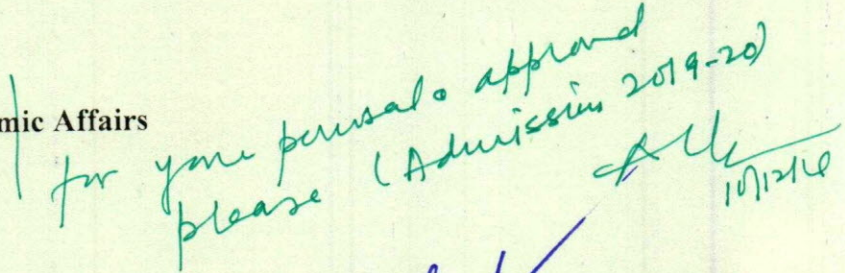 mic Affairs
for your perusal & approval
please (Admission 2019-20)